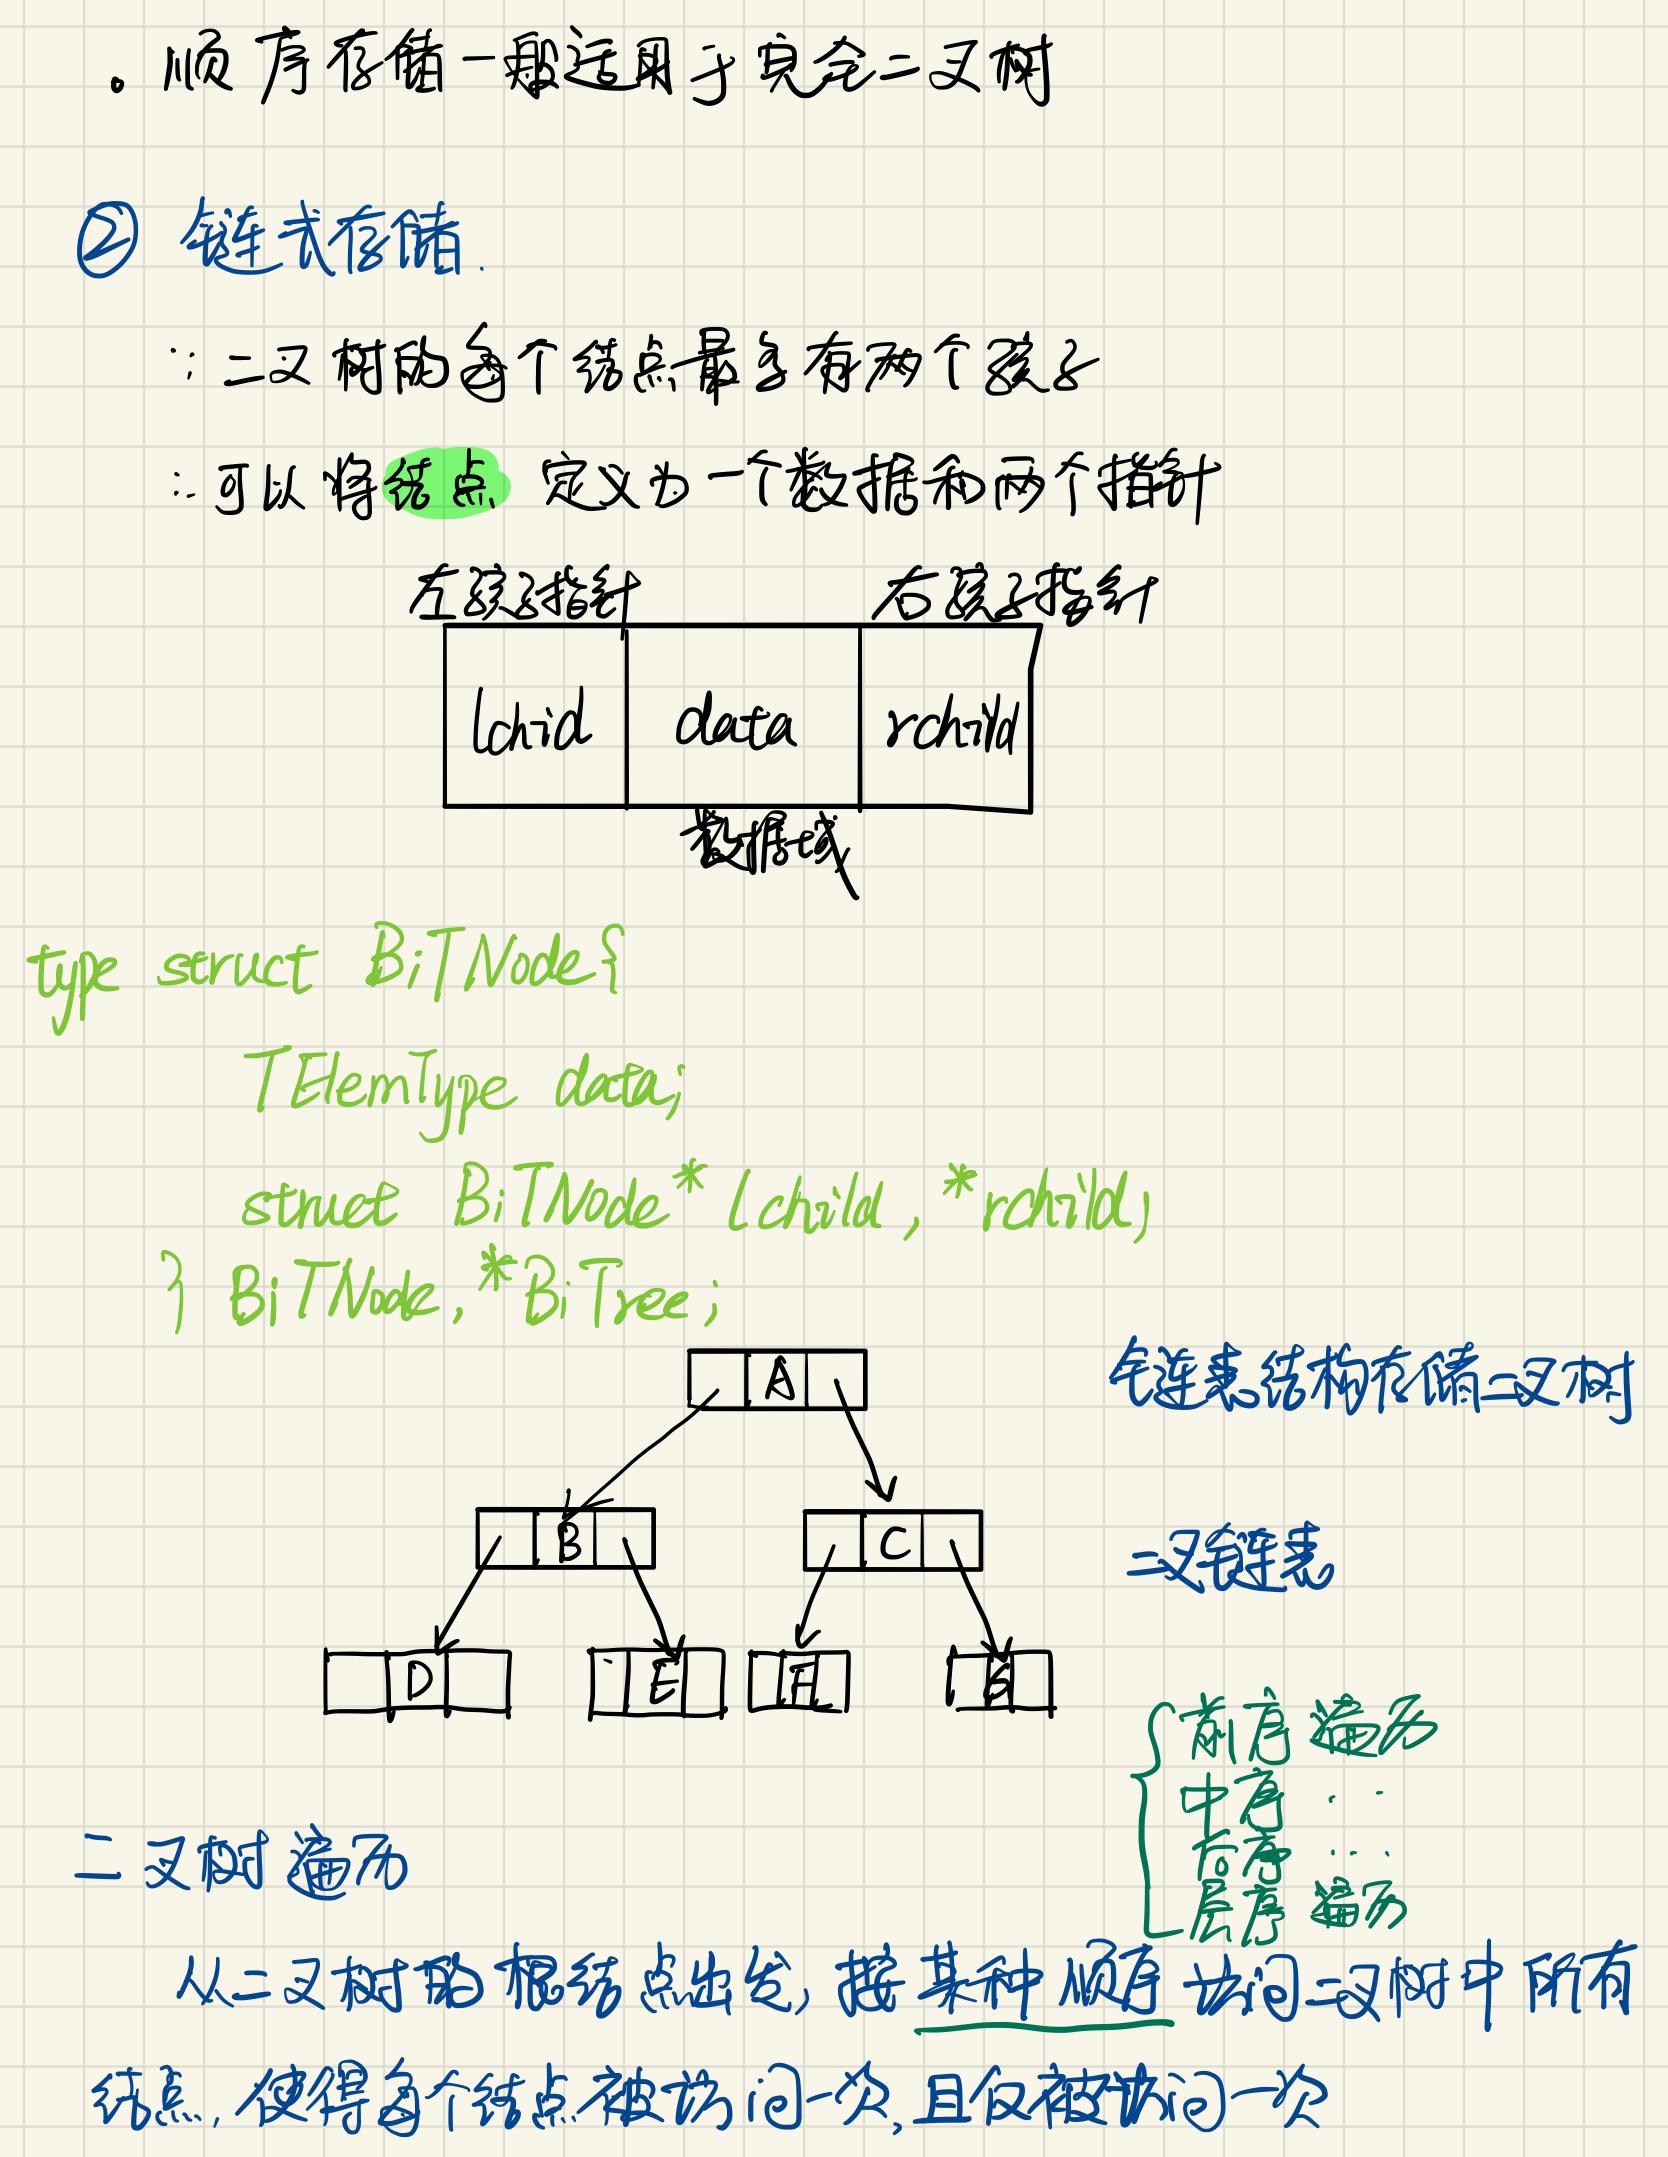 。顺序存储一般适用于完全二叉树
② 链式存储.
∵二叉树的每个结点最多有两个孩子
∴可以将结点 定义为一个数据和两个指针
左孩子指针 右孩子指针
lchid data rchild
数据域
type struct BiTNode{
TElemType data;
struct BiTNode* lchild, *rchild;
} BiTNode,*BiTree;
A
链表结构存储二叉树
B C
二叉链表
D E F G
前序 遍历
中序 ‥
后序 ‥
层序 遍历
二叉树遍历
从二叉树的根结点出发, 按某种顺序访问二叉树中所有
结点, 使得每个结点被访问一次,且仅被访问一次